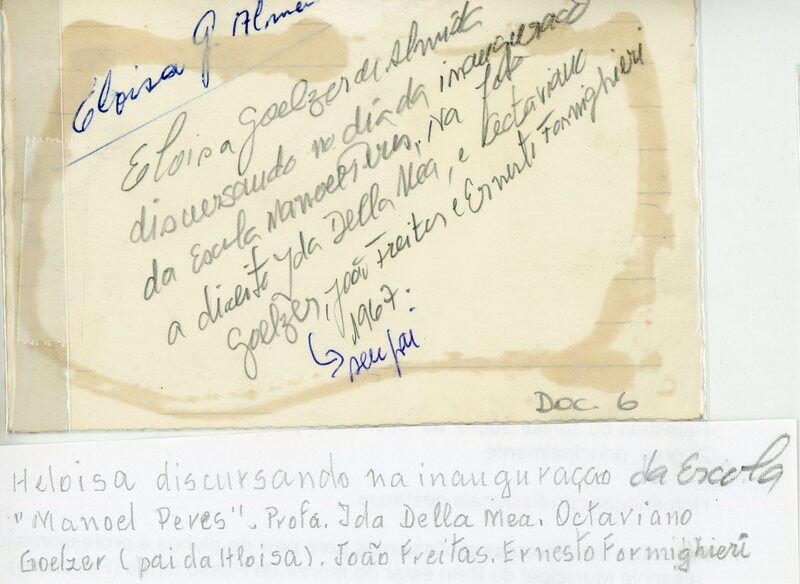 Eloisa G Almei
Eloisa Goelzer de Almeida
discursando no dia da inauguração
da Escola Manoel Peres, na foto
a direita Ida Della Mea, e Octaviano
Goelzer, João Freitas e Ernesto Formighieri
1967.
↳ seu pai
Doc. 6
Heloisa discursando na inauguração da Escola
"Manoel Peres". Profa. Ida Della Mea. Octaviano
Goelzer (pai da Hloisa). João Freitas. Ernesto Formighieri